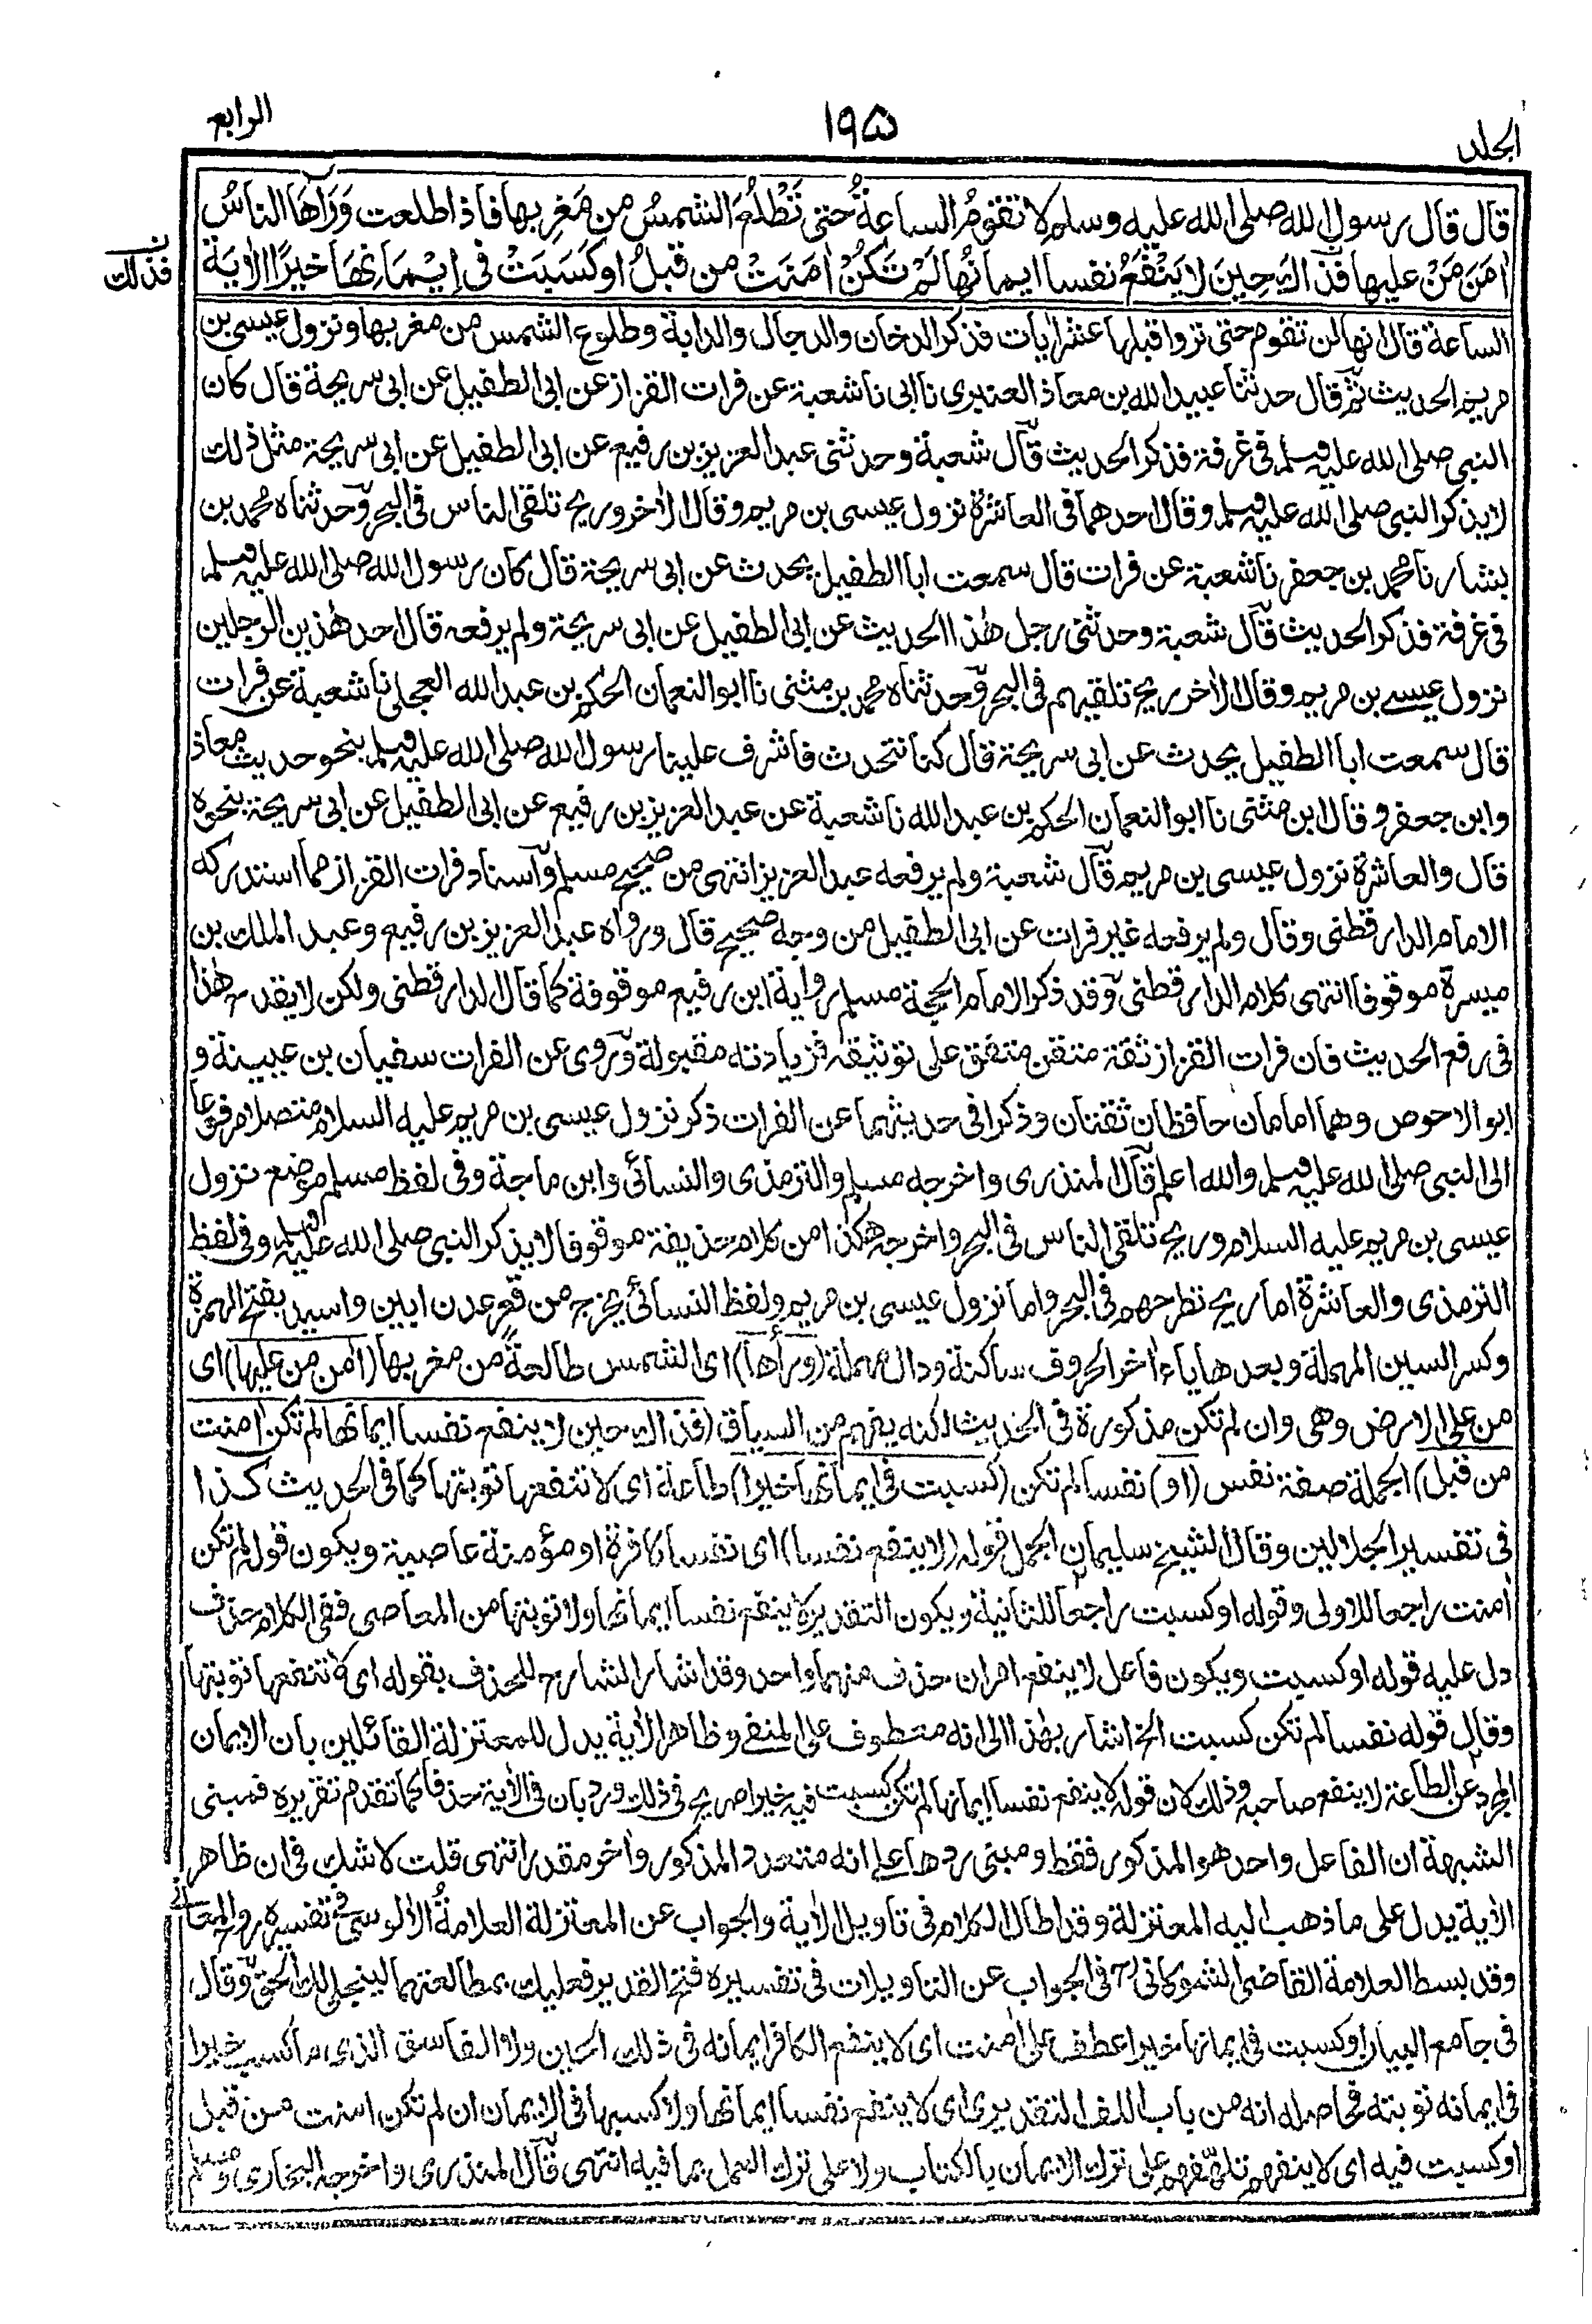 الجلد
١٩٥
الرابع
قال قال رسول الله صلى الله عليه وسلم لا تقومُ الساعةُ حتى تَطْلُعَ الشمسُ من مَغرِبها فاذا طلعت وَرَآهَا الناسُ
اٰمَنَ مَنْ عليها فذاك حِينَ لا يَنْفَعُ نفسا ايمانُها لَمْ تَكُنْ اٰمَنَتْ من قبلُ او كَسَبَتْ فى اِيْمَانِهَا خيرًا الاٰيَةَ
ن فذلك
الساعة قال انها لن تقوم حتى تروا قبلها عشر اٰيات فذكر الدخان والدجال والدابة وطلوع الشمس من مغربها ونزول عيسى بن
مريم الحديث ثم قال حدثنا عبيد الله بن معاذ العنبرى نا ابى نا شعبة عن فرات القزاز عن ابى الطفيل عن ابى سريحة قال كان
النبى صلى الله عليه وسلم فى غرفة فذكر الحديث قال شعبة وحدثنى عبد العزيز بن رفيع عن ابى الطفيل عن ابى سريحة مثل ذلك
لا يذكر النبى صلى الله عليه وسلم وقال احدهما فى العاشرة نزول عيسى بن مريم وقال الاٰخر وريح تلقى الناس فى البحر وحدثناه محمد بن
بشار نا محمد بن جعفر نا شعبة عن فرات قال سمعت ابا الطفيل يحدث عن ابى سريحة قال كان رسول الله صلى الله عليه وسلم
فى غرفة فذكر الحديث قال شعبة وحدثنى رجل هٰذا الحديث عن ابى الطفيل عن ابى سريحة ولم يرفعه قال احد هٰذين الرجلين
نزول عيسى بن مريم وقال الاٰخر ريح تلقيهم فى البحر وحدثناه محمد بن مثنى نا ابو النعمان الحكم بن عبد الله العجلى نا شعبة عن فرات
قال سمعت ابا الطفيل يحدث عن ابى سريحة قال كنا نتحدث فاشرف علينا رسول الله صلى الله عليه وسلم بنحو حديث معاذ
وابن جعفر وقال ابن مثنى نا ابو النعمان الحكم بن عبد الله نا شعبة عن عبد العزيز بن رفيع عن ابى الطفيل عن ابى سريحة بنحوه
قال والعاشرة نزول عيسى بن مريم قال شعبة ولم يرفعه عبد العزيز انتهى من صحيح مسلم واسناد فرات القزاز مما استدركه
الامام الدارقطنى وقال ولم يرفعه غير فرات عن ابى الطفيل من وجه صحيح قال ورواه عبد العزيز بن رفيع وعبد الملك بن
ميسرة موقوفا انتهى كلام الدارقطنى وقد ذكر الامام الحجة مسلم رواية ابن رفيع موقوفة كما قال الدارقطنى ولكن لا يقدح هٰذا
فى رفع الحديث فان فرات القزاز ثقة متقن متفق على توثيقه فزيادته مقبولة وروى عن الفرات سفيان بن عيينة و
ابو الاحوص وهما امامان حافظان ثقتان وذكرا فى حديثهما عن الفرات ذكر نزول عيسى بن مريم عليه السلام متصلا مرفوعا
الى النبى صلى الله عليه وسلم والله اعلم قال المنذرى واخرجه مسلم والترمذى والنسائى وابن ماجة وفى لفظ مسلم موضع نزول
عيسى بن مريم عليه السلام وريح تلقى الناس فى البحر واخرجه هكذا من كلام حذيفة موقوفا لا يذكر النبى صلى الله عليه وسلم وفى لفظ
الترمذى والعاشرة اما ريح تطرحهم فى البحر واما نزول عيسى بن مريم ولفظ النسائى يخرج من قعر عدن ابين واسيد بفتح الهمزة
وكسر السين المهملة وبعدها ياء اٰخر الحروف ساكنة ودال مهملة (ورأها) اى الشمس طالعةً من مغربها (اٰمن من عليها) اى
من على الارض وهى وان لم تكن مذكورة فى الحديث لكنه يفهم من السياق (فذاك حين لا ينفع نفسا ايمانها لم تكن اٰمنت
من قبل) الجملة صفة نفس (او) نفسا لم تكن (كسبت فى ايمانها خيرا) طاعة اى لا تنفعها توبتها كما فى الحديث كذا
فى تفسير الجلالين وقال الشيخ سليمان الجمل قوله (لا ينفع نفسا) اى نفسا كافرة او مؤمنة عاصية ويكون قوله لم تكن
اٰمنت راجعا للاولى وقوله او كسبت راجعا للثانية ويكون التقدير لا ينفع نفسا ايمانها ولا توبتها من المعاصى ففى الكلام حذف
دل عليه قوله او كسبت ويكون فاعل لا ينفع امران حذف منهما واحد وقد اشار الشارح للحذف بقوله اى لا تنفعها توبتها
وقال قوله نفسا لم تكن كسبت الخ اشار بهٰذا الى انه معطوف على المنفى وظاهر الاٰية يدل للمعتزلة القائلين بان الايمان
المجرد عن الطاعة لا ينفع صاحبه وذلك لان قوله لا ينفع نفسا ايمانها لم تكن كسبت فيه خيرا صريح فى ذلك ورد بان فى الاٰية حذفا كما تقدم تقريره فمبنى
الشبهة ان الفاعل واحد هو المذكور فقط ومبنى ردها على انه متعدد المذكور واٰخر مقدر انتهى قلت لا شك فى ان ظاهر
الاٰية يدل على ما ذهب اليه المعتزلة وقد اطال الكلام فى تاويل الاٰية والجواب عن المعتزلة العلامةُ الاٰلوسى فى تفسيره روح المعانى
وقد بسط العلامة القاضى الشوكانى رح فى الجواب عن التاويلات فى تفسيره فتح القدير فعليك بمطالعتهما لينجلى لك الحق وقال
فى جامع البيان او كسبت فى ايمانها خيرا عطف على اٰمنت اى لا ينفع الكافر ايمانه فى ذلك الحين ولا الفاسق الذى ما كسب خيرا
فى ايمانه توبته فحاصله انه من باب اللف التقديرى اى لا ينفع نفسا ايمانها ولا كسبها فى الايمان ان لم تكن اٰمنت من قبل
او كسبت فيه اى لا ينفعهم تلهفهم على ترك الايمان بالكتاب ولا على ترك العمل بما فيه انتهى قال المنذرى واخرجه البخارى ومسلم